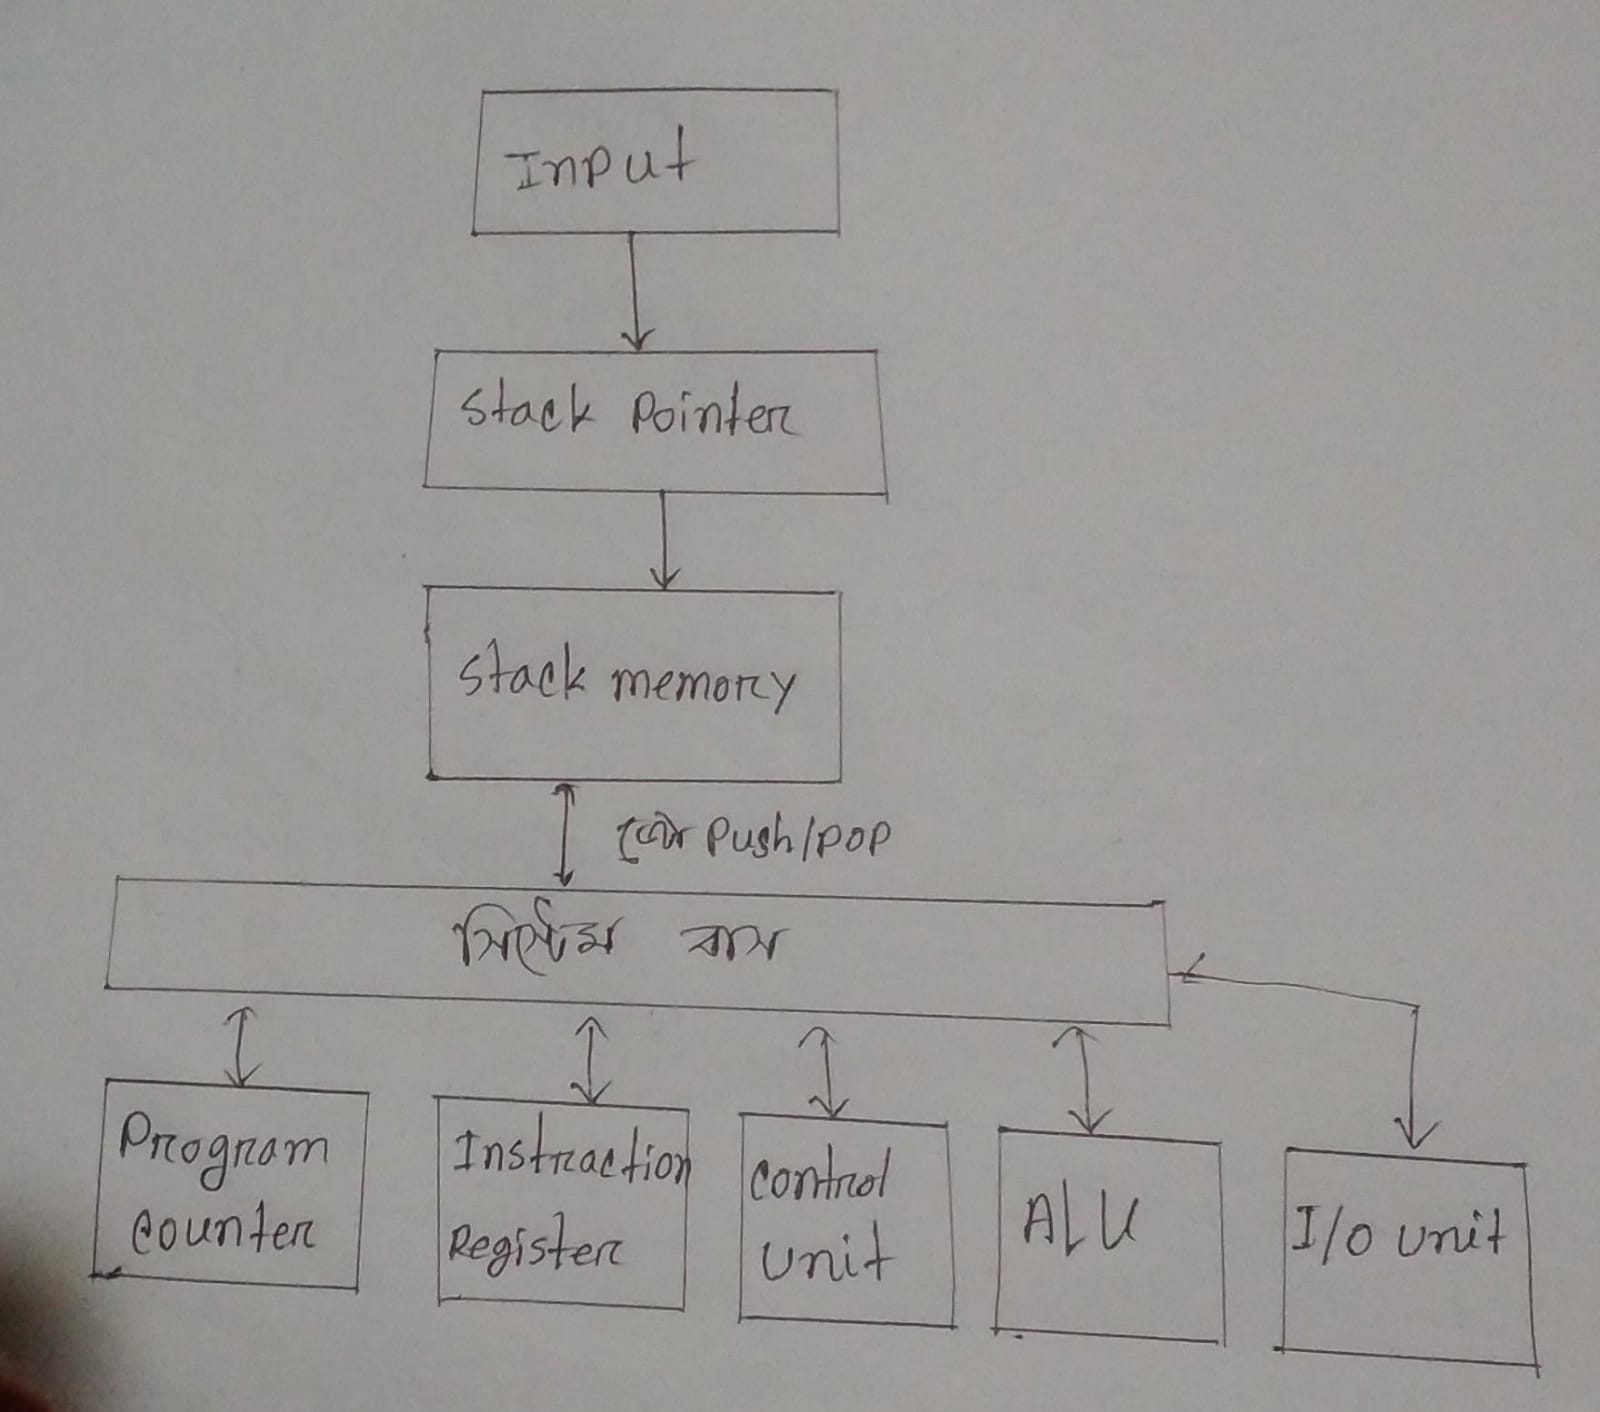 Input
Stack Pointer
Stack memory
Push/pop
সিস্টেম বাস
Program
Counter
Instraction
Register
Control
Unit
ALU
I/O Unit